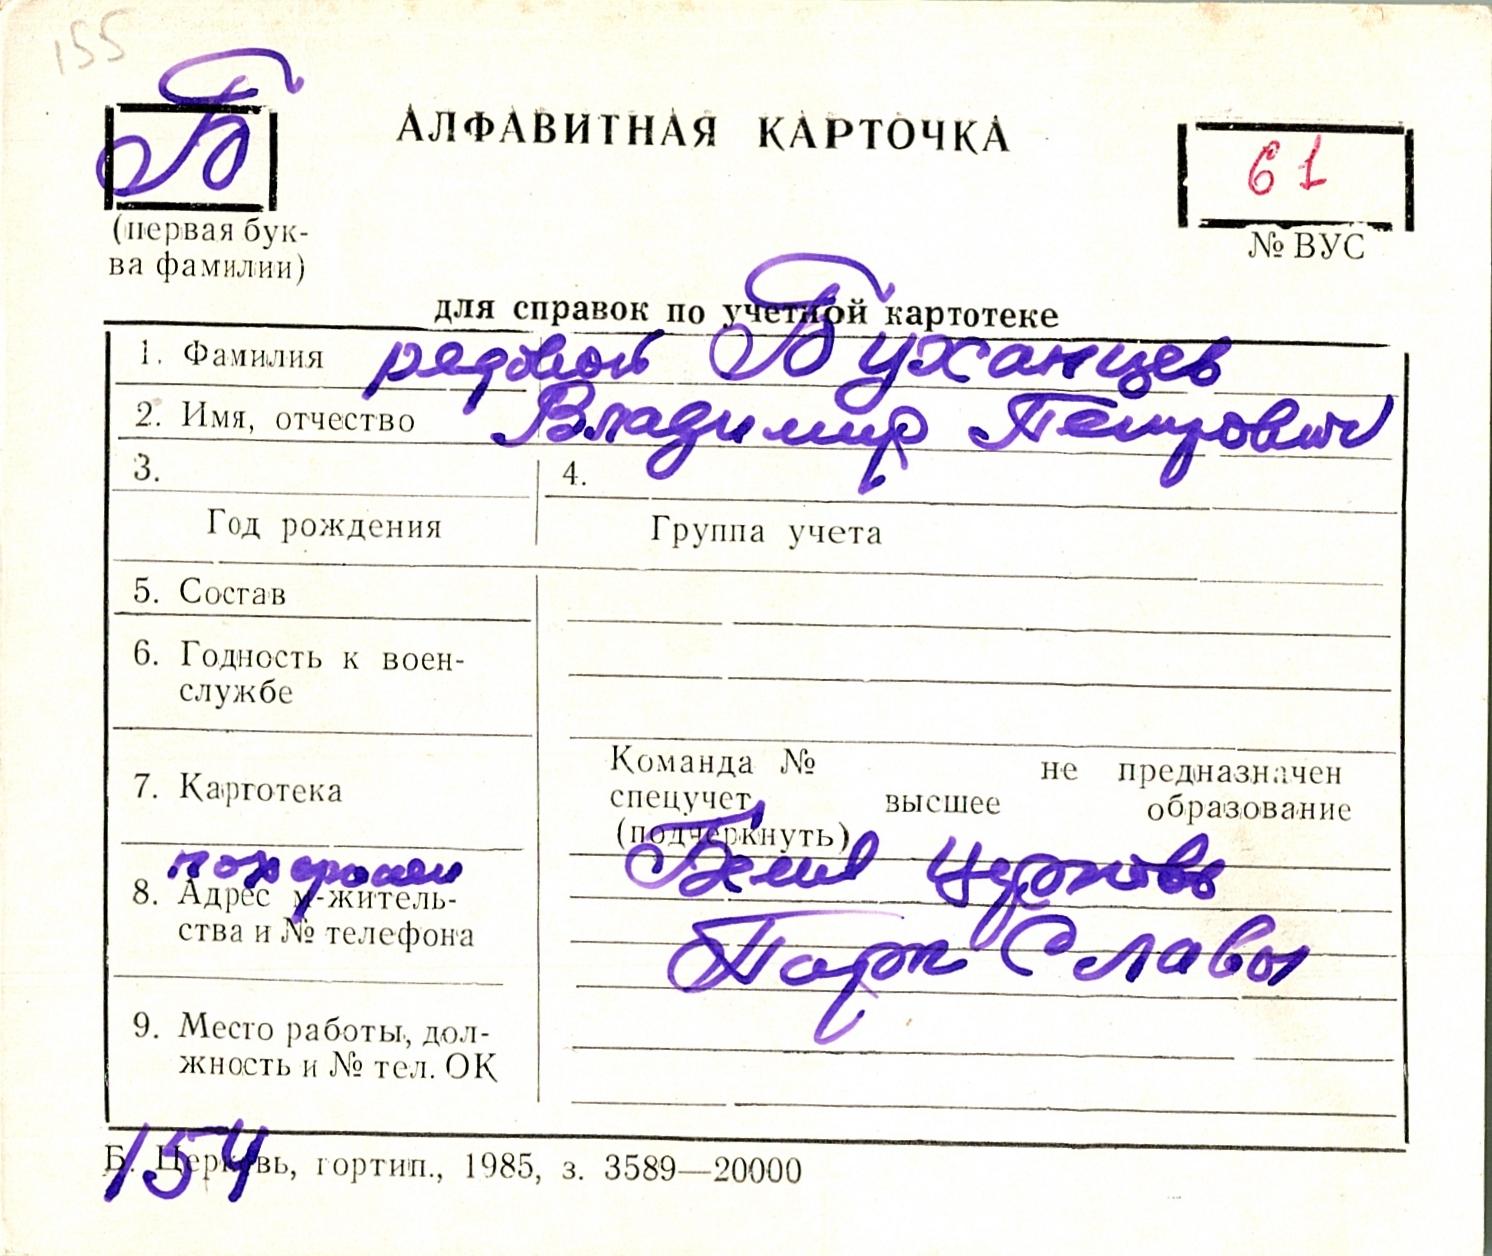 155
Б
АЛФАВИТНАЯ КАРТОЧКА
61
(первая бук-
ва фамилии)
№ ВУС
для справок по учетной картотеке
1. Фамилия рядовой Буханцев
2. Имя, отчество Владимир Петрович
3. 4.
Год рождения Группа учета
5. Состав
6. Годность к воен-
службе
7. Картотека
Команда № не предназначен
спецучет, высшее образование
(подчеркнуть)
похоронен
8. Адрес м-житель-
ства и № телефона
Белая Церковь
Парк Славы
9. Место работы, дол-
жность и № тел. ОК
154
Б. Церковь, гортип., 1985, з. 3589—20000